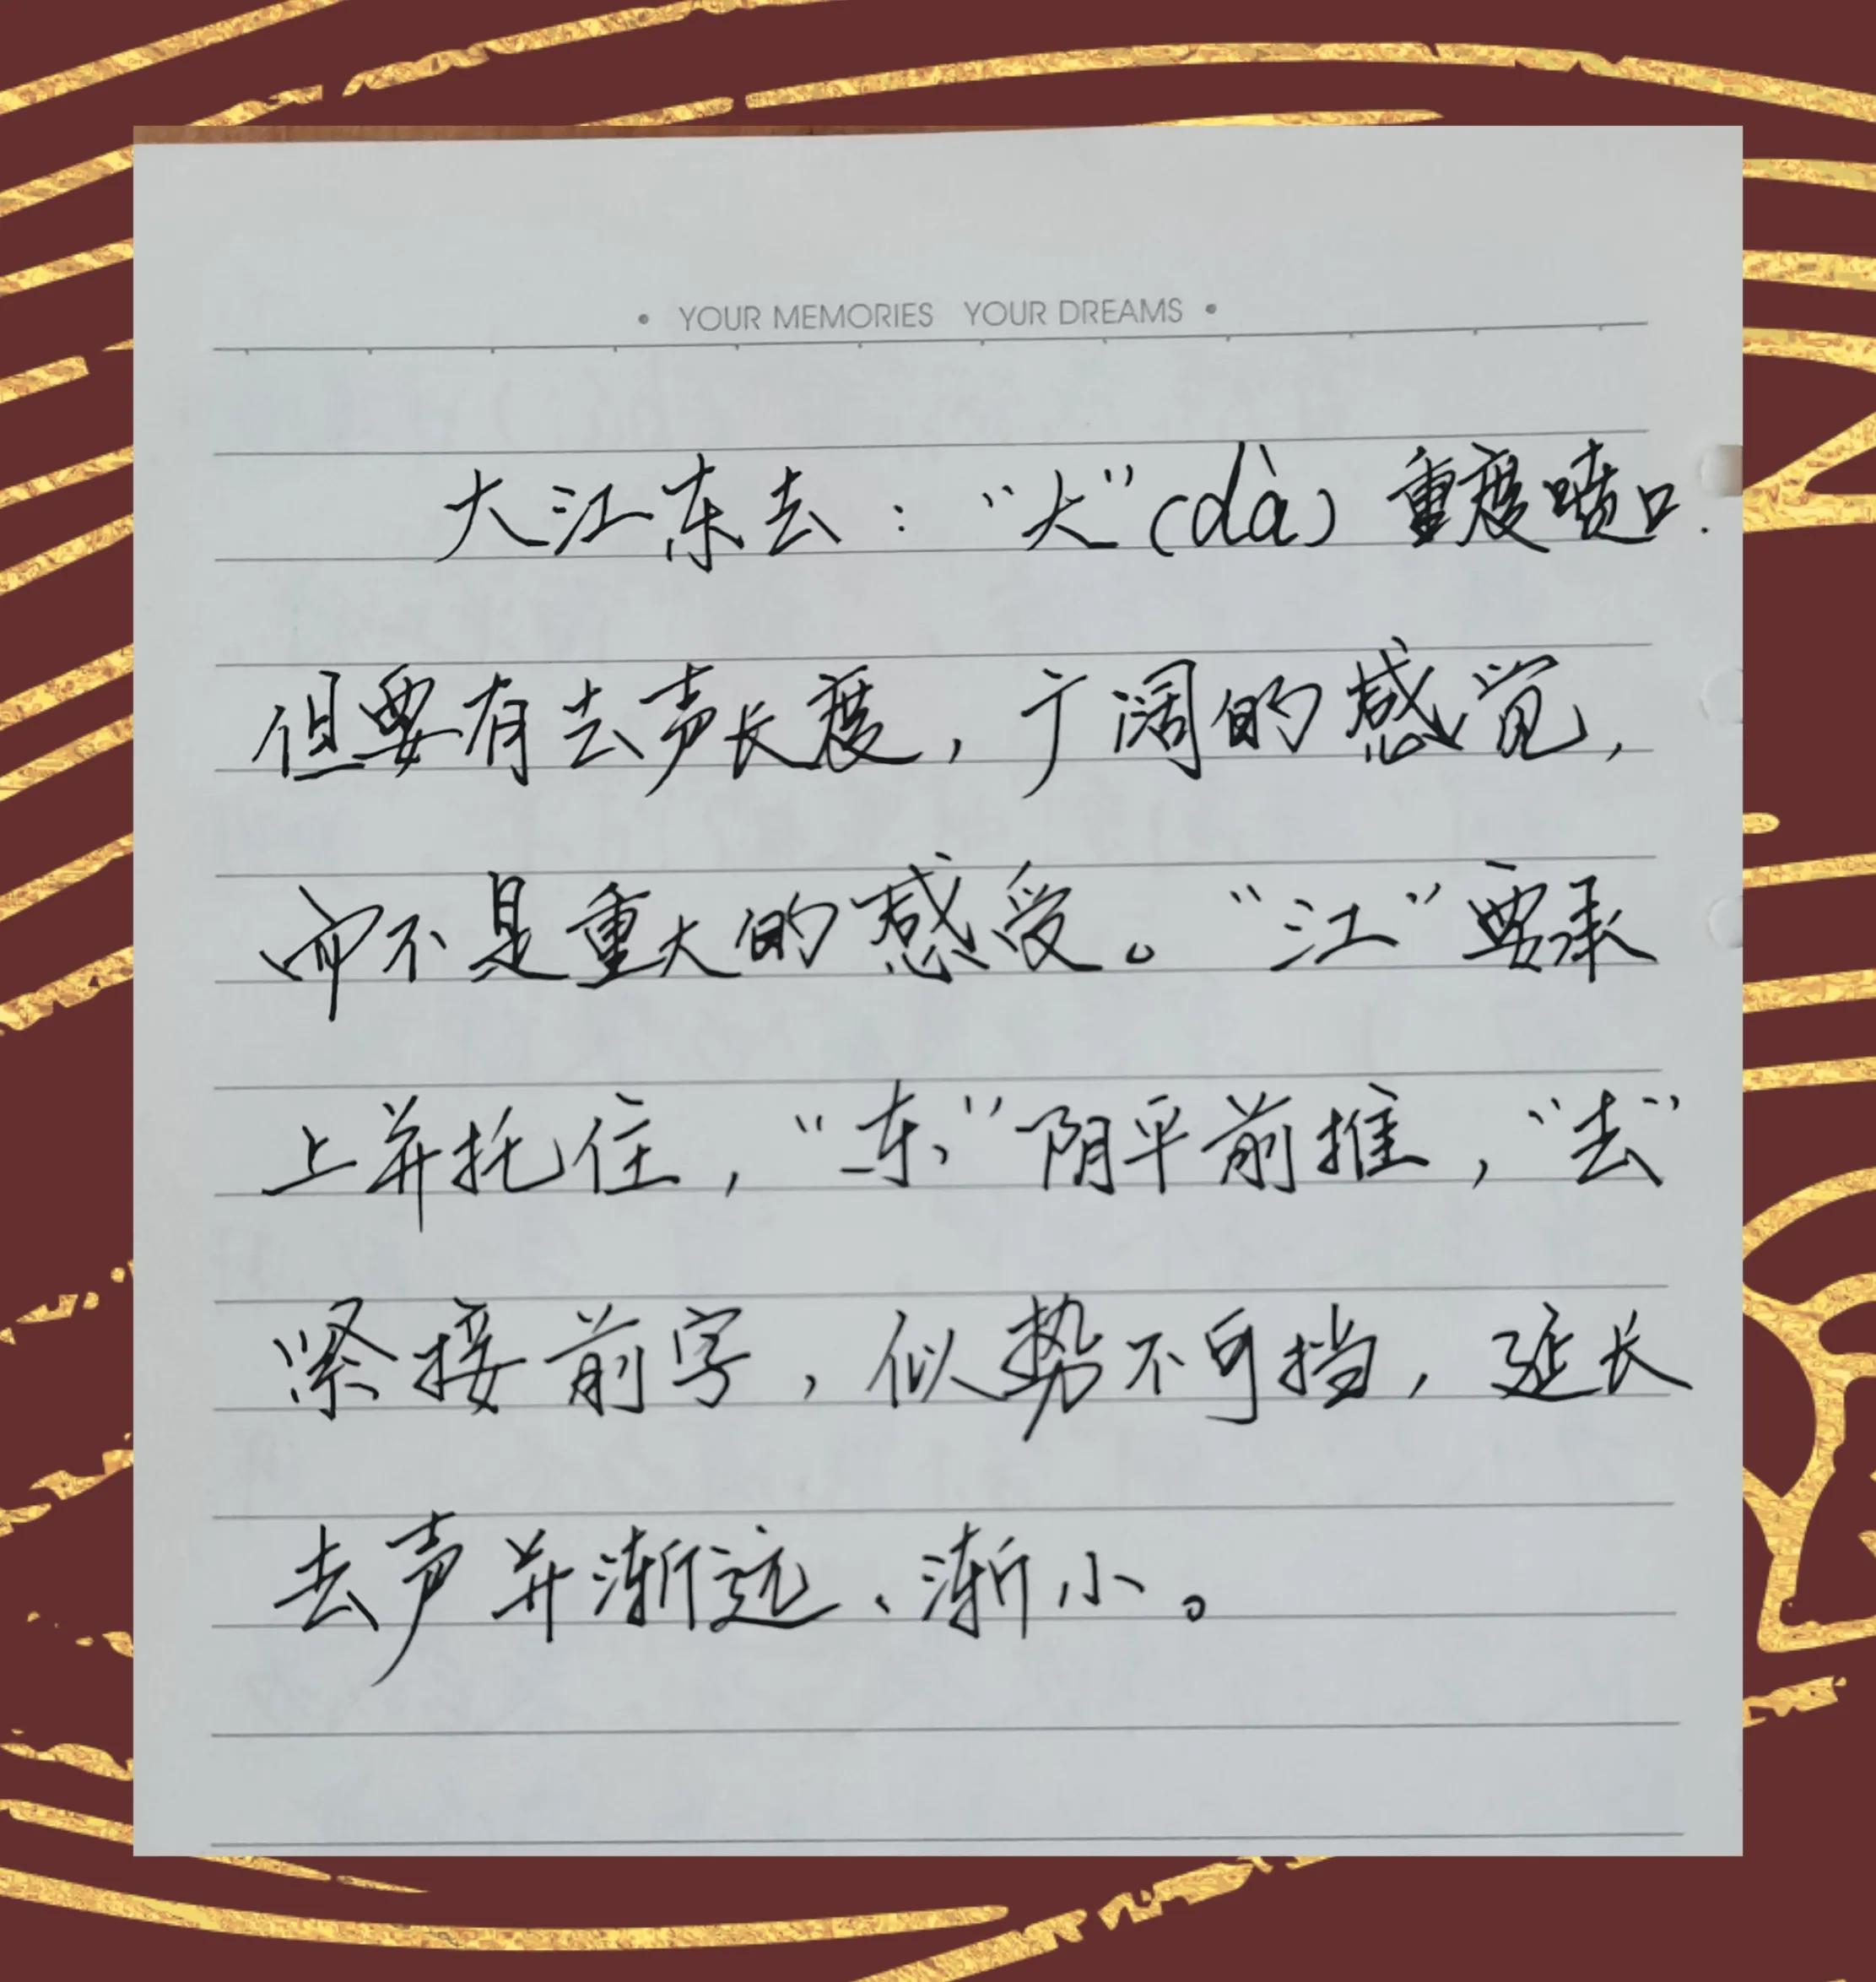 • YOUR MEMORIES YOUR DREAMS •
大江东去：“大”(dà)重度喷口.
但要有去声长度，广阔的感觉，
而不是重大的感受。“江”要承
上并托住，“东”阴平前推，“去”
紧接前字，似势不可挡，延长
去声并渐远、渐小。